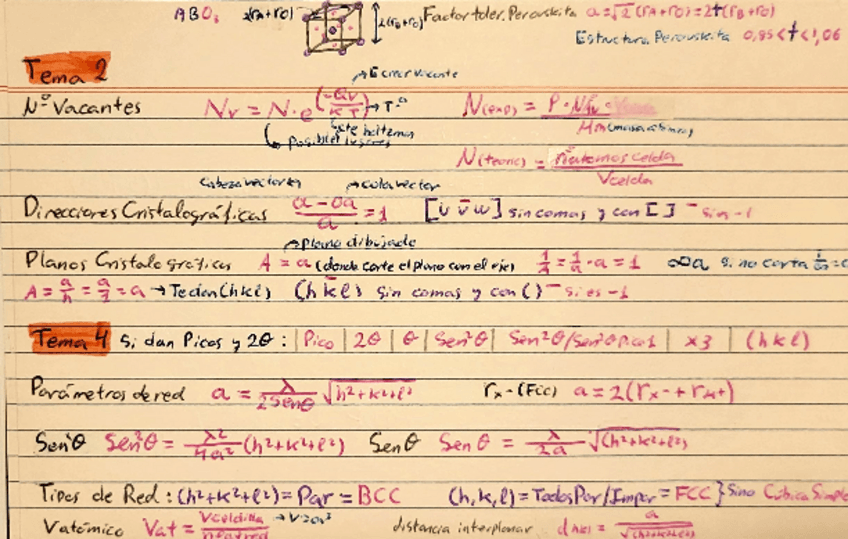 ABO₃ 2(rA+rO) 2(rB+rO) Factor toler. Perovskita a=√2(rA+rO)=2t(rB+rO)
Estructura Perovskita 0,85<t<1,06
Tema 2
→E crear vacante
Nº Vacantes Nv = N·e^(-Qv/KT) →Tª N(exp) = ρ·NAv
posibles lugares cte boltzman Mm(masa atómica)
N(teoric) = nºatomos celda / Vcelda
cabeza vector cola vector
Direcciones Cristalográficas a-0a/a = 1 [u v̄ w] sin comas y con [ ] ¯ si es -1
→plano dibujado
Planos Cristalográficos A = a (donde corte el plano con el eje) 1/A = 1/a · a = 1 ∞a si no corta
A = a/h = a/1 = a → Te dan (hkl) (h k l) sin comas y con () ¯ si es -1
Tema 4 Si dan Picos y 2θ: | Pico | 2θ | θ | Sen²θ | Sen²θ/Sen²θ pico1 | x3 | (h k l)
Parámetros de red a = λ/2Senθ √h²+k²+l² rx- (FCC) a = 2(rx- + rM+)
Sen²θ Sen²θ = λ²/4a² (h²+k²+l²) Senθ Senθ = λ/2a √(h²+k²+l²)
Tipos de Red: (h²+k²+l²) = Par = BCC (h,k,l) = Todos Par/Impar = FCC } Sino Cúbica Simple
Vatómico Vat = Vceldilla/nºat red distancia interplanar dhkl = a/√(h²+k²+l²)